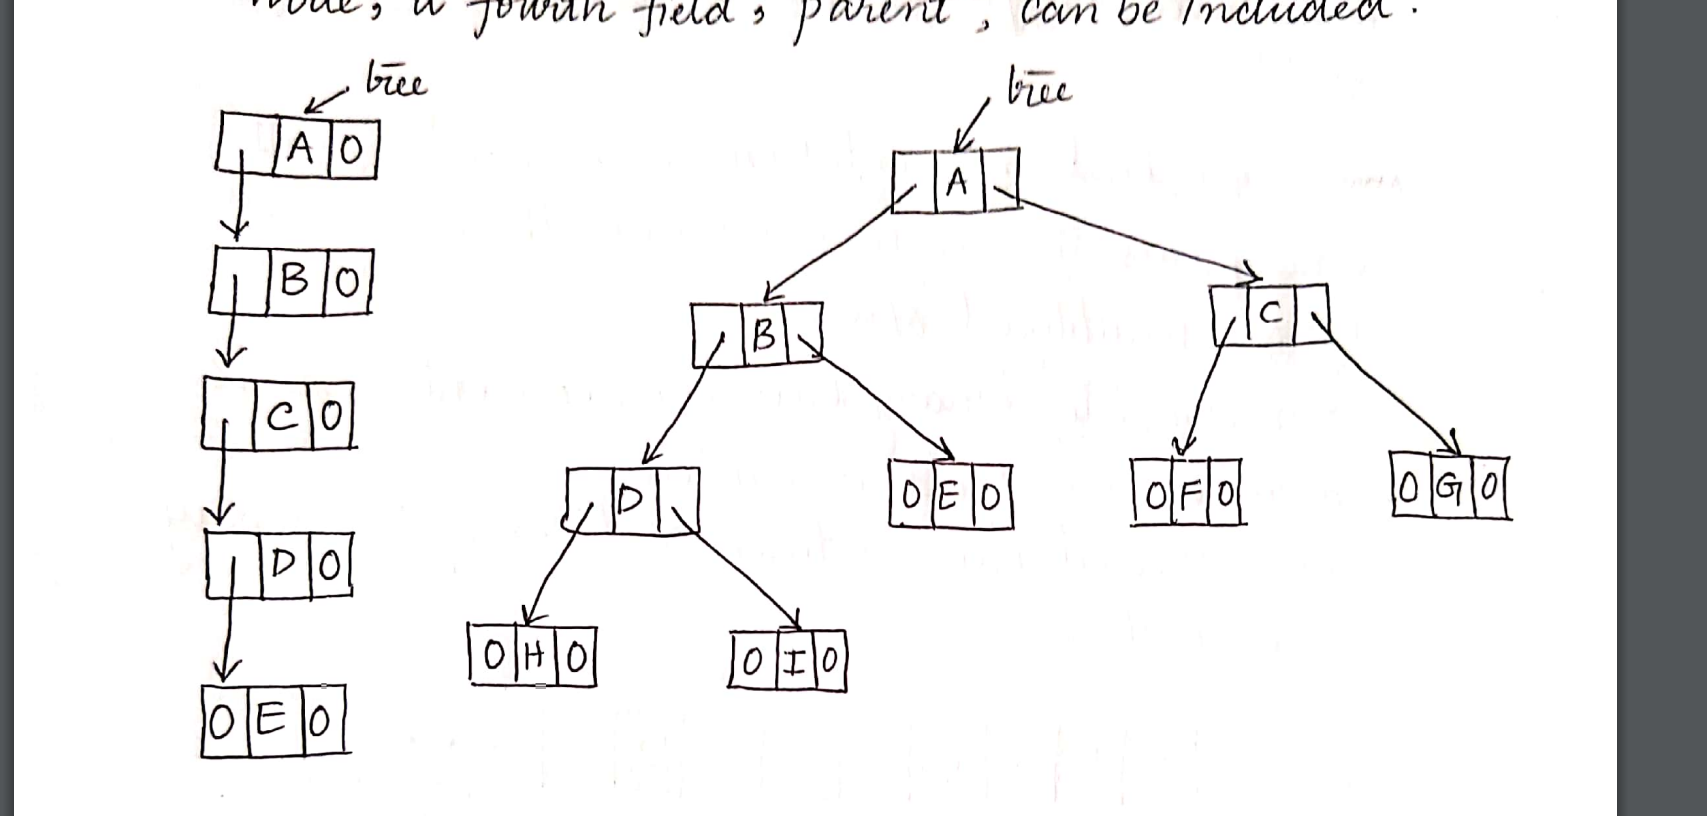 node, a fourth field, parent, can be included.
tree
A 0
B 0
C 0
D 0
0 E 0
tree
A
B
C
D
0 E 0
0 F 0
0 G 0
0 H 0
0 I 0